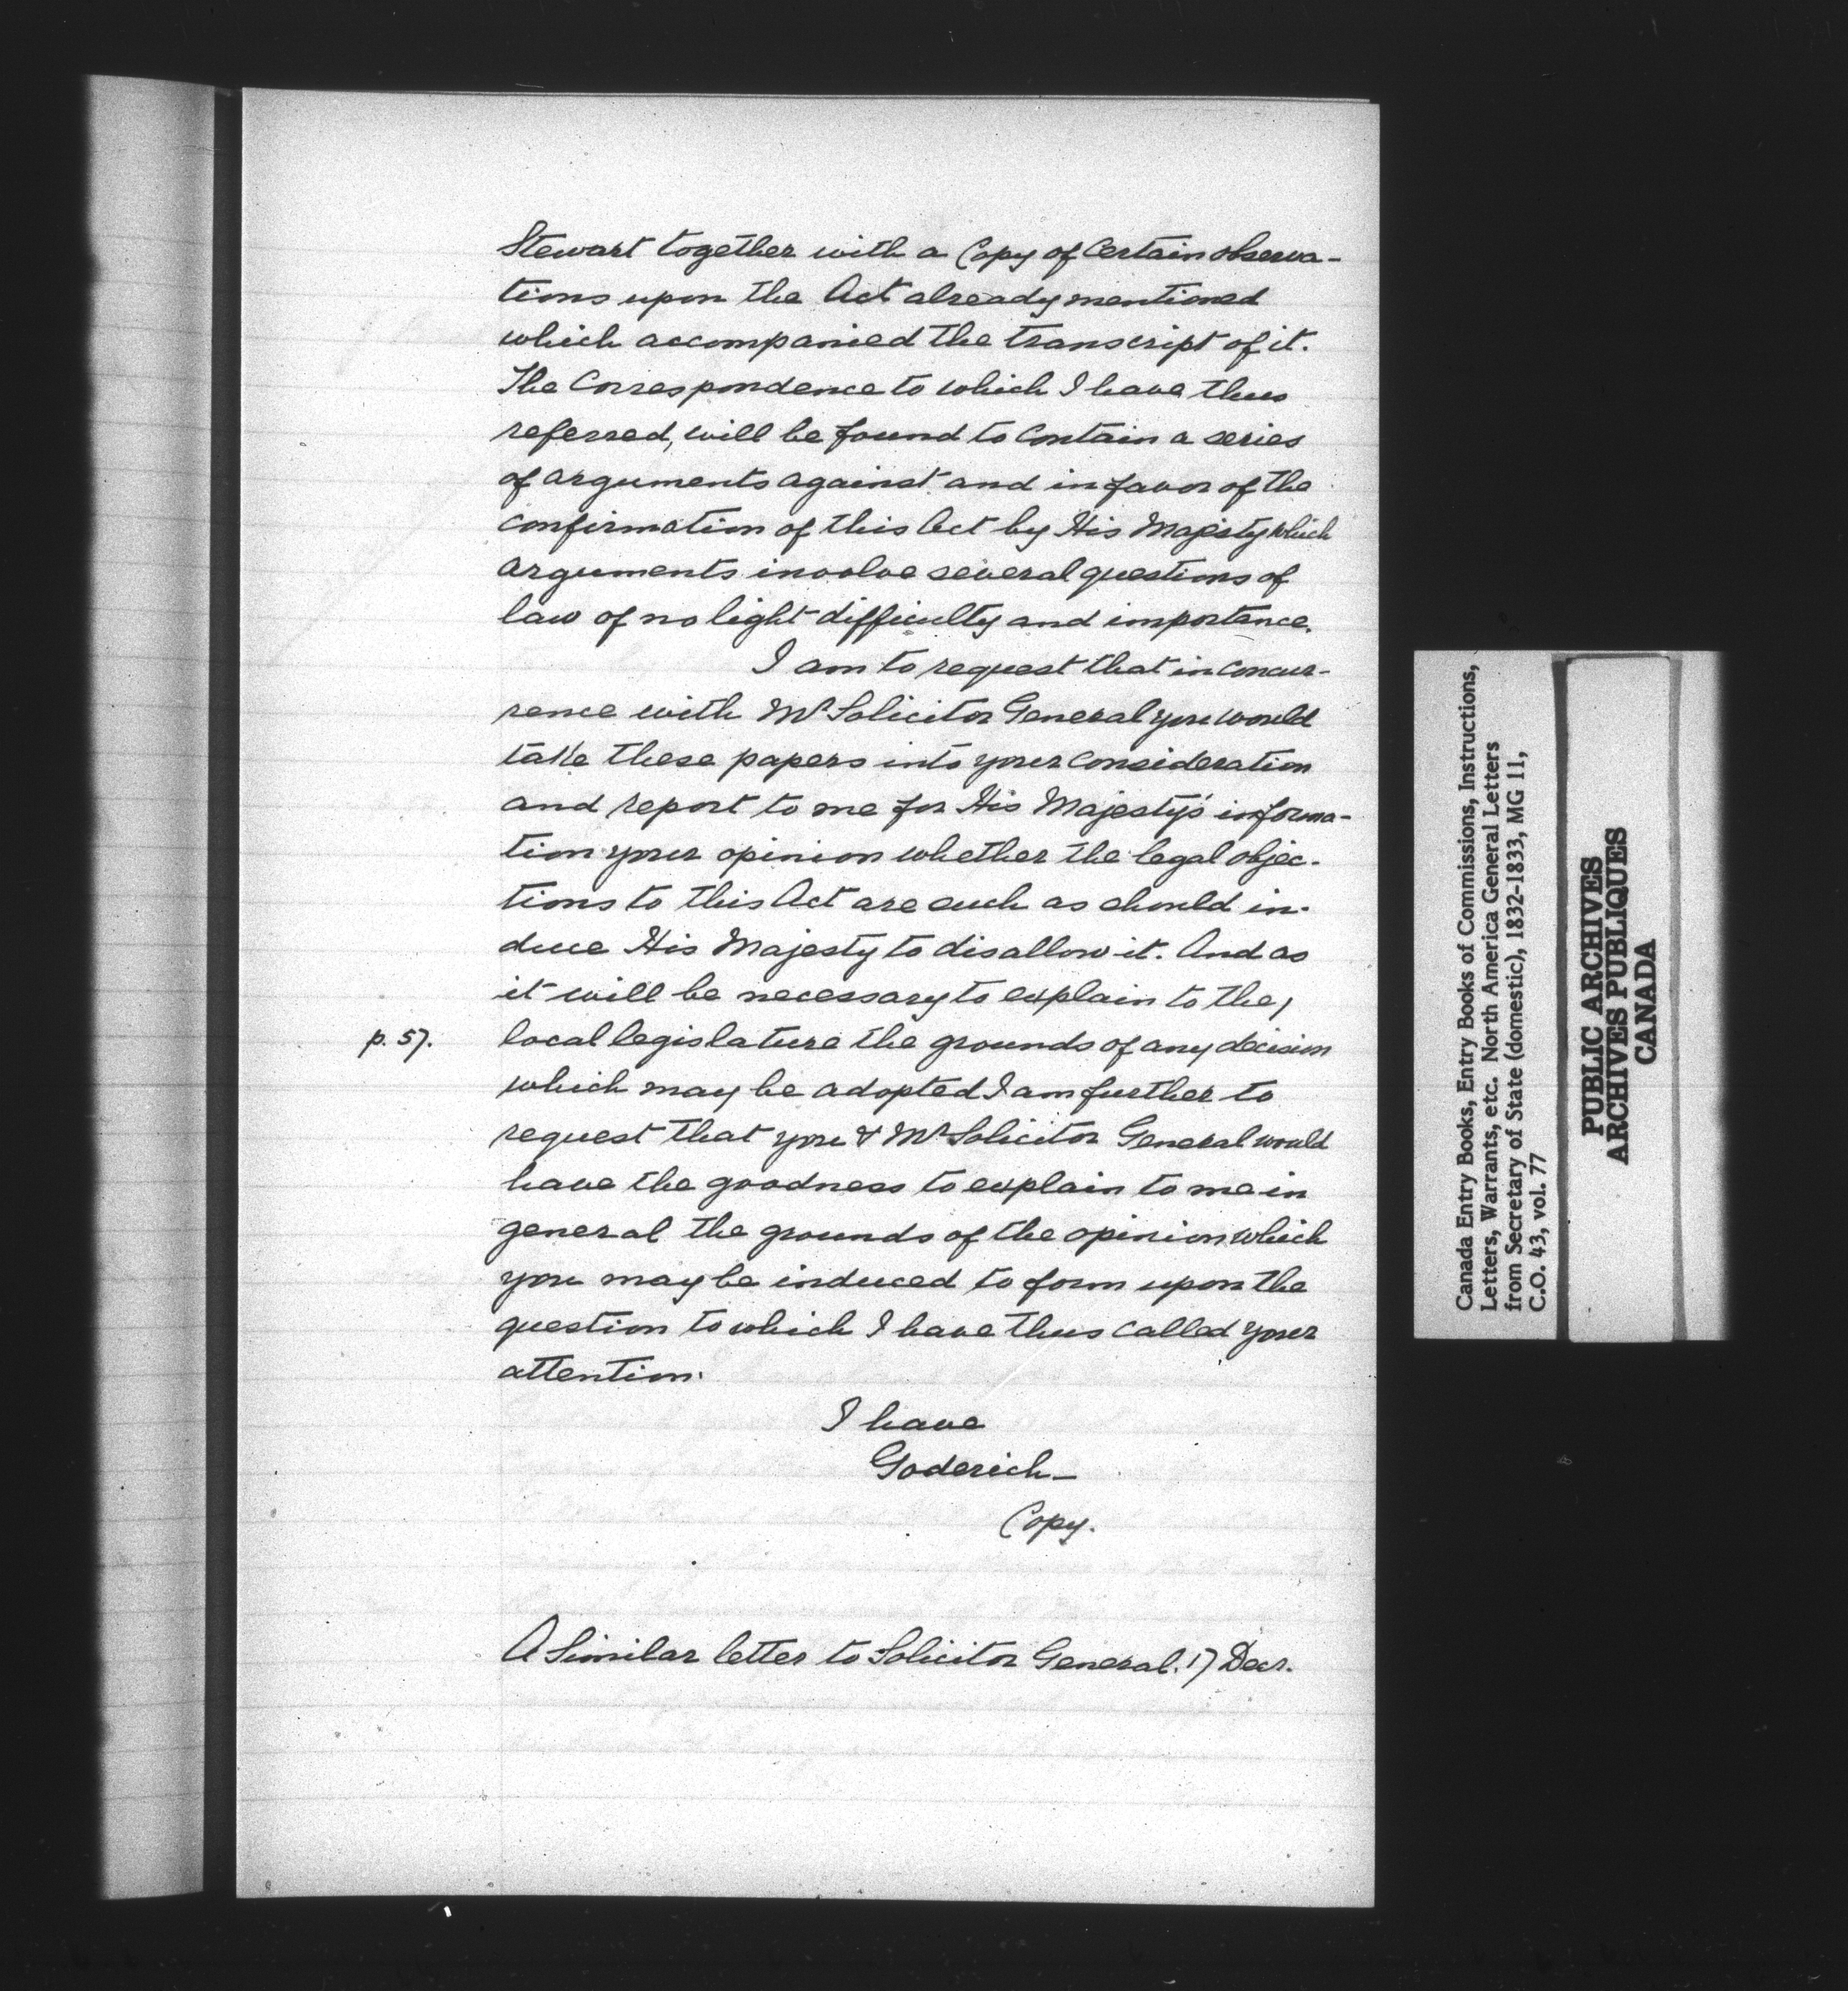 Stewart together with a Copy of Certain observa-
tions upon the Act already mentioned
which accompanied the transcript of it.
The Correspondence to which I have thus
referred, will be found to Contain a series
of arguments against and in favor of the
confirmation of this Act by His Majesty which
arguments involve several questions of
law of no light difficulty and importance.
I am to request that in concur-
rence with Mr Solicitor General you would
take these papers into your consideration
and report to me for His Majesty's informa-
tion your opinion whether the legal objec-
tions to this Act are such as should in-
duce His Majesty to disallow it. And as
it will be necessary to explain to the,
p. 57. local legislature the grounds of any decision
which may be adopted I am further to
request that you & Mr Solicitor General would
have the goodness to explain to me in
general the grounds of the opinion which
you may be induced to form upon the
question to which I have thus called your
attention.
I have
Goderich-
Copy.
A Similar letter to Solicitor General. 17 Decr.
Canada Entry Books, Entry Books of Commissions, Instructions,
Letters, Warrants, etc. North America General Letters
from Secretary of State (domestic), 1832-1833, MG 11,
C.O. 43, vol. 77
PUBLIC ARCHIVES
ARCHIVES PUBLIQUES
CANADA